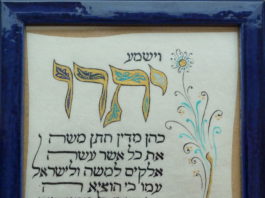 וישמע
יתרו
כהן מדין חתן משה
את כל אשר עשה
אלקים למשה ולישראל
עמו כי הוציא ה